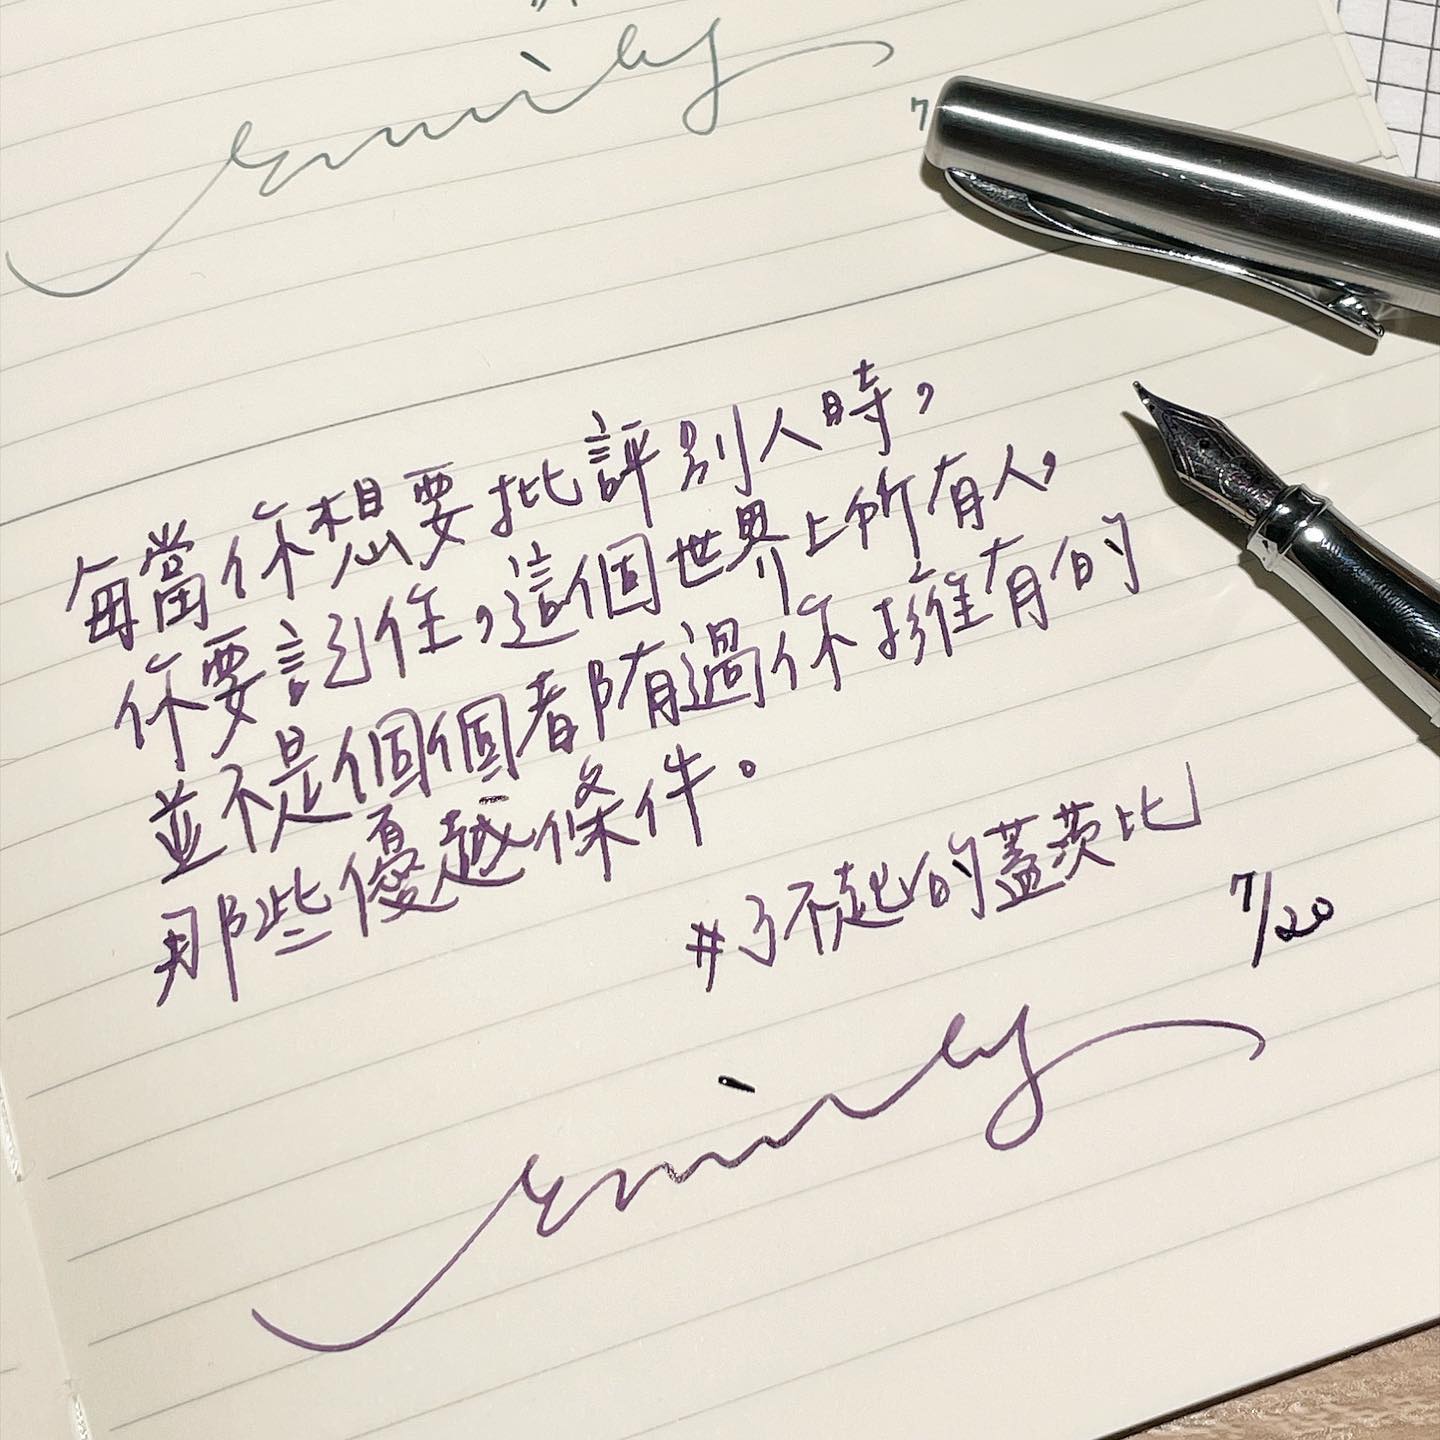 emily
7
每當你想要批評別人時，
你要記住，這個世界上所有人，
並不是個個都有過你擁有的
那些優越條件。
#了不起的蓋茨比
7/20
emily